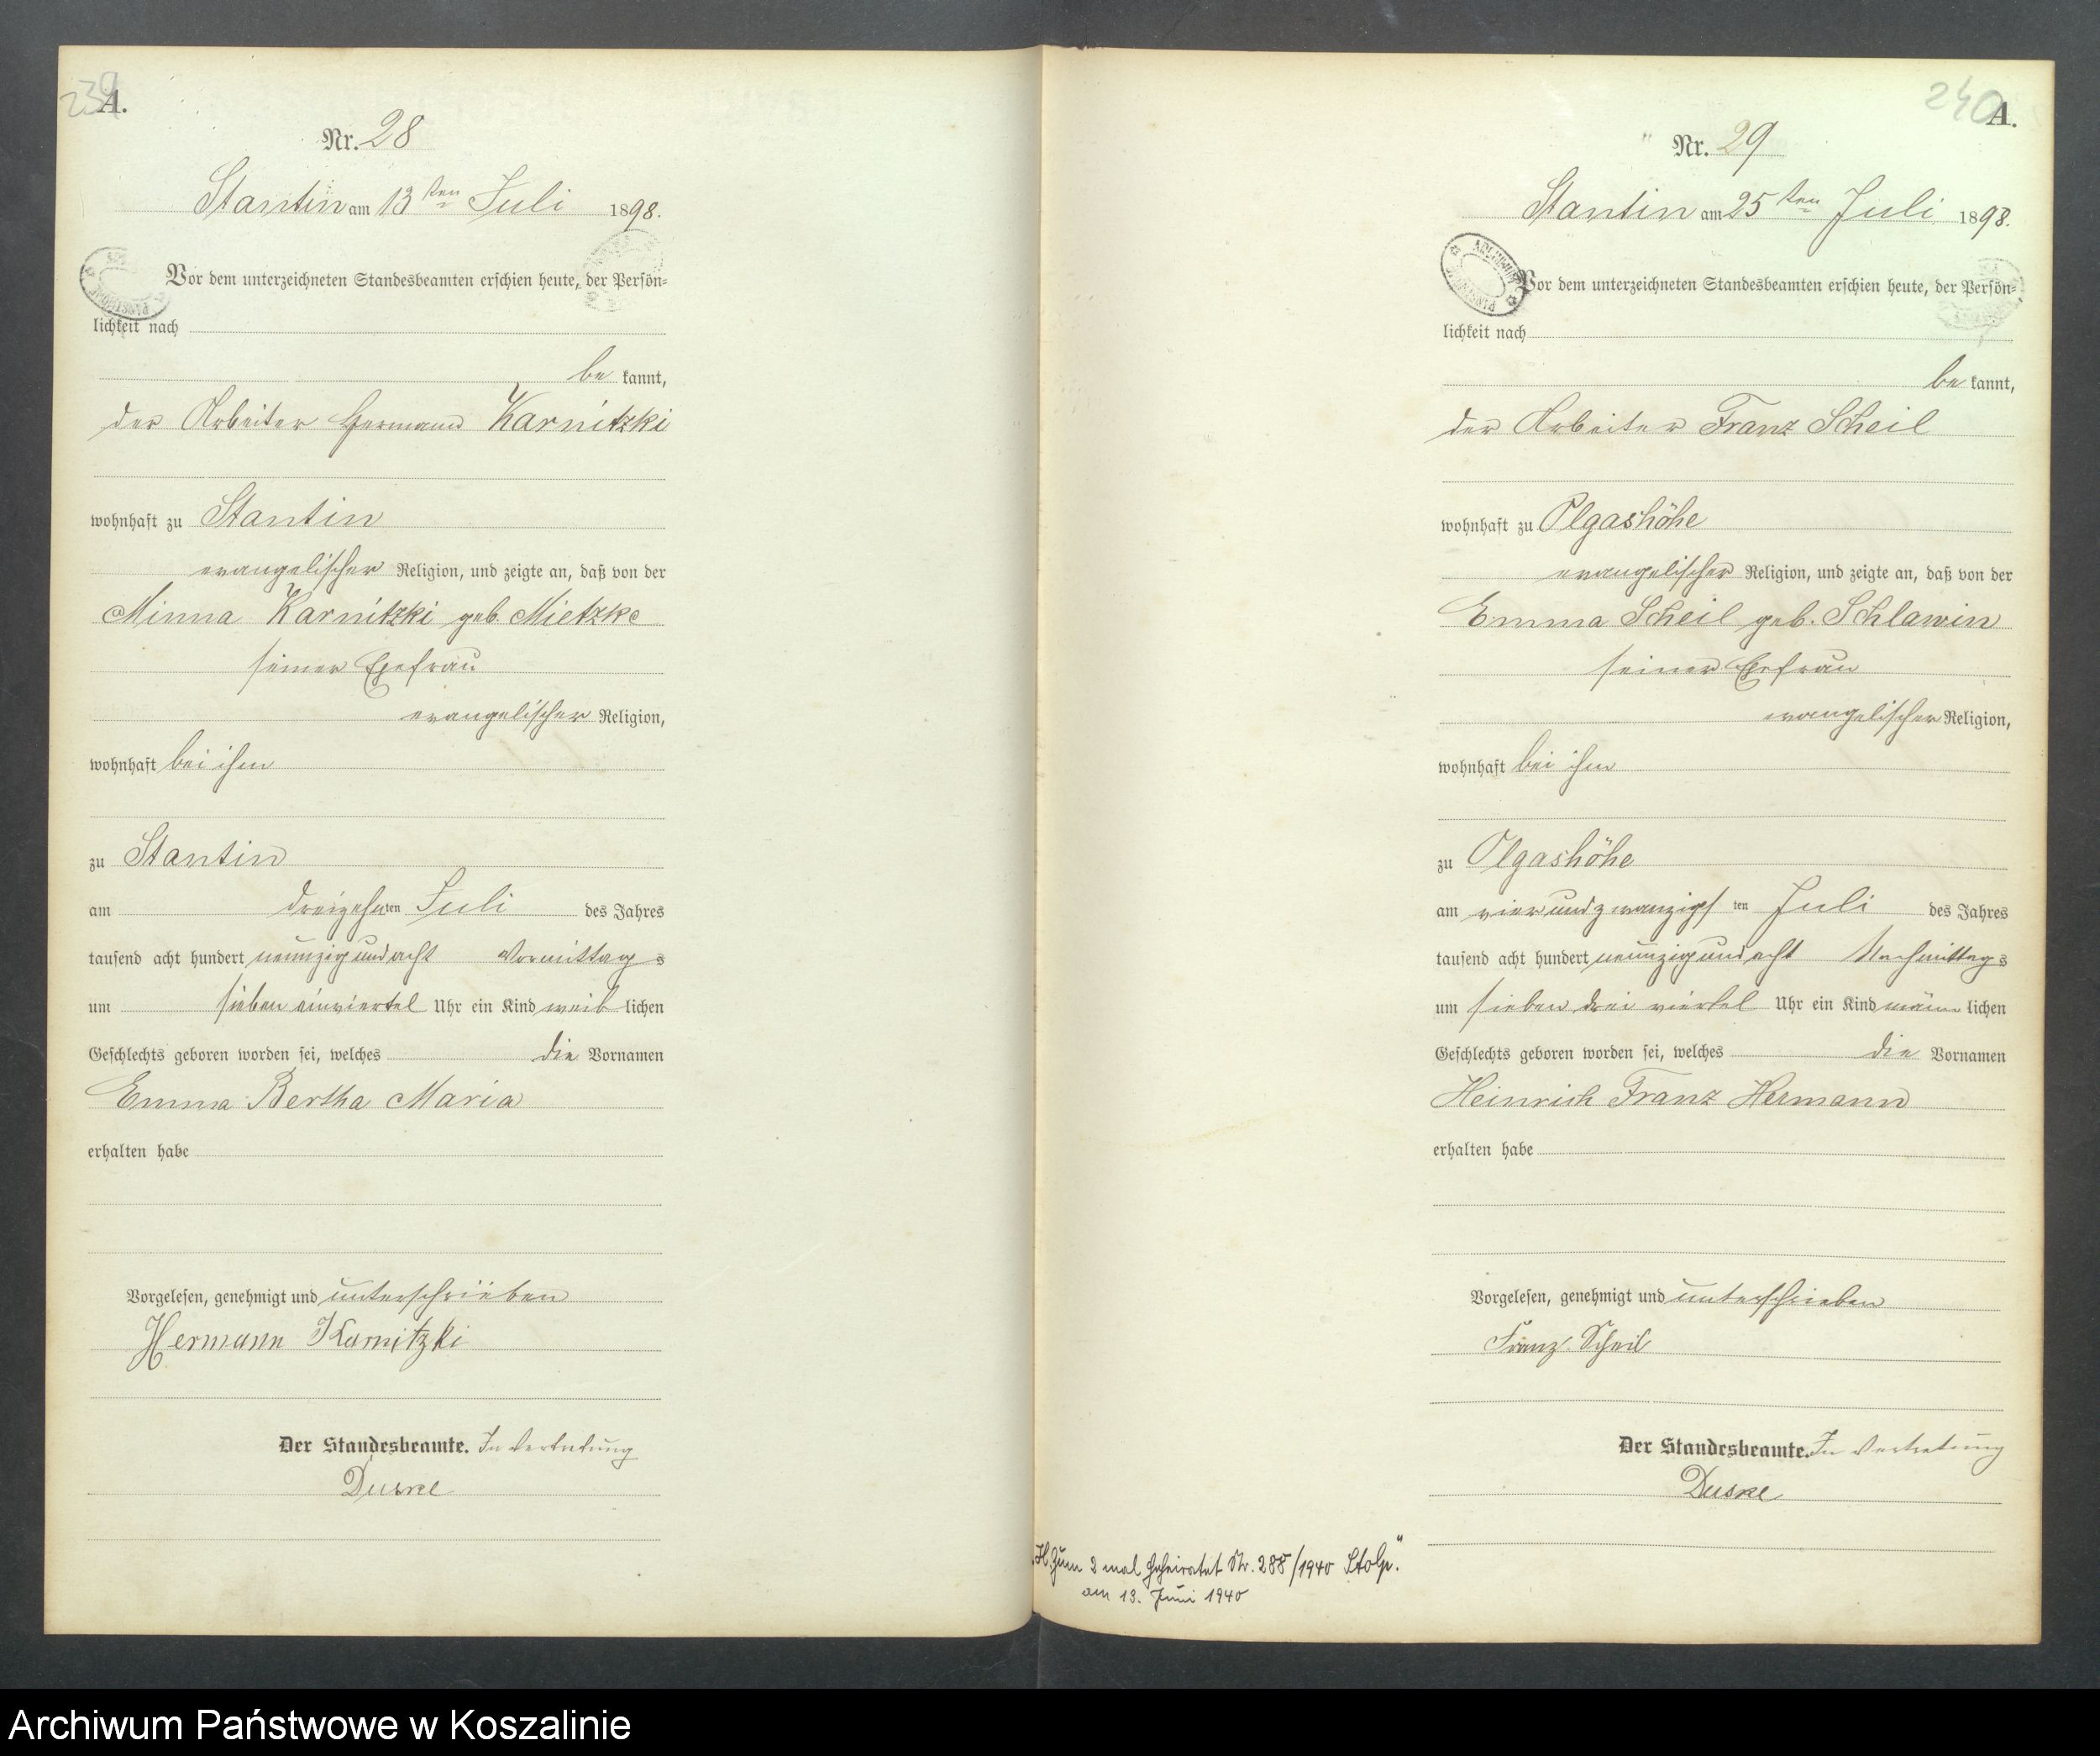 239
A.
Nr. 28
Stantin am 13ten Juli 1898.
Vor dem unterzeichneten Standesbeamten erschien heute, der Persön-
lichkeit nach
be kannt,
der Arbeiter Hermann Karnitzki
wohnhaft zu Stantin
evangelischer Religion, und zeigte an, daß von der
Minna Karnitzki geb. Mietzke
seiner Ehefrau
evangelischer Religion,
wohnhaft bei ihm
zu Stantin
am dreizehnten Juli des Jahres
tausend acht hundert neunzig und acht Vormittags
um sieben einviertel Uhr ein Kind weiblichen
Geschlechts geboren worden sei, welches die Vornamen
Emma Bertha Maria
erhalten habe
Vorgelesen, genehmigt und unterschrieben
Hermann Karnitzki
Der Standesbeamte. In Vertretung
Duske
240
A.
Nr. 29
Stantin am 25ten Juli 1898.
ARCHIWUM
Vor dem unterzeichneten Standesbeamten erschien heute, der Persön-
lichkeit nach
be kannt,
der Arbeiter Franz Scheil
wohnhaft zu Olgashöhe
evangelischer Religion, und zeigte an, daß von der
Emma Scheil geb. Schlawin
seiner Ehefrau
evangelischer Religion,
wohnhaft bei ihm
zu Olgashöhe
am vierundzwanzigsten Juli des Jahres
tausend acht hundert neunzig und acht Nachmittags
um sieben drei viertel Uhr ein Kind männlichen
Geschlechts geboren worden sei, welches die Vornamen
Heinrich Franz Hermann
erhalten habe
Vorgelesen, genehmigt und unterschrieben
Franz Scheil
Der Standesbeamte. In Vertretung
Duske
„H. Zum 2 mal geheiratet Nr. 288/1940 Stolp."
am 13. Juni 1940
Archiwum Państwowe w Koszalinie